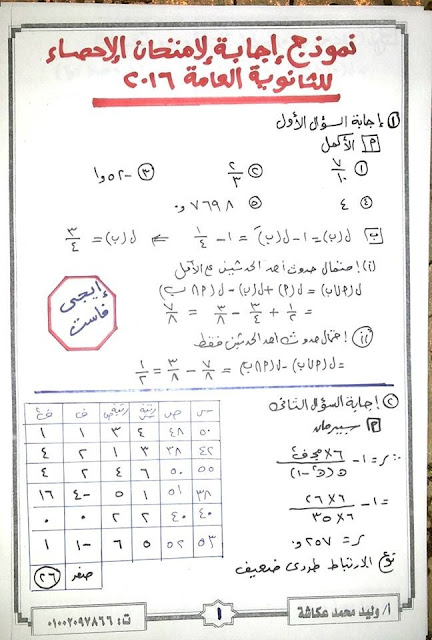 نموذج إجابة لامتحان الإحصاء
للثانوية العامة ٢٠١٦
١ إجابة السؤال الأول
أ الأكمل
١ ٧/١٠ ٢ ٢/٣ ٣ -١,٥٢
٤ ٤ ٥ ٠,٧٦٩٨
ب ل(ب) = ١ - ل(بَ) = ١ - ١/٤ ⇐ ل(ب) = ٣/٤
(i) احتمال حدوث أحد الحدثين على الأقل
ل(A∪ب) = ل(A) + ل(ب) - ل(A∩ب)
= ١/٢ + ٣/٤ - ٣/٨ = ٧/٨
(ii) احتمال حدوث أحد الحدثين فقط
= ل(A∪ب) - ل(A∩ب)
= ٧/٨ - ٣/٨ = ١/٢
إيجى
فاست
٢ إجابة السؤال الثانى
أ سبيرمان
∵ ر = ١ - ٦ × مجـ ف٢ / ن(ن٢ - ١)
= ١ - ٦ × ٢٦ / ٦ × ٣٥
ر = ٠,٢٥٧
نوع الارتباط طردى ضعيف
س ص رتبة س رتبة ص ف ف٢
٥٠ ٤٨ ٤ ٣ ١ ١
٤٢ ٣٨ ٣ ١ ٢ ٤
٥٥ ٥٠ ٦ ٤ ٢ ٤
٣٨ ٥١ ١ ٥ -٤ ١٦
٤٠ ٤٠ ٢ ٢ ٠ ٠
٥٣ ٥٢ ٥ ٦ -١ ١
صفر ٢٦
أ/ وليد محمد عكاشة
١
ت: ٠١٠٠٢٠٩٧٨٦٦